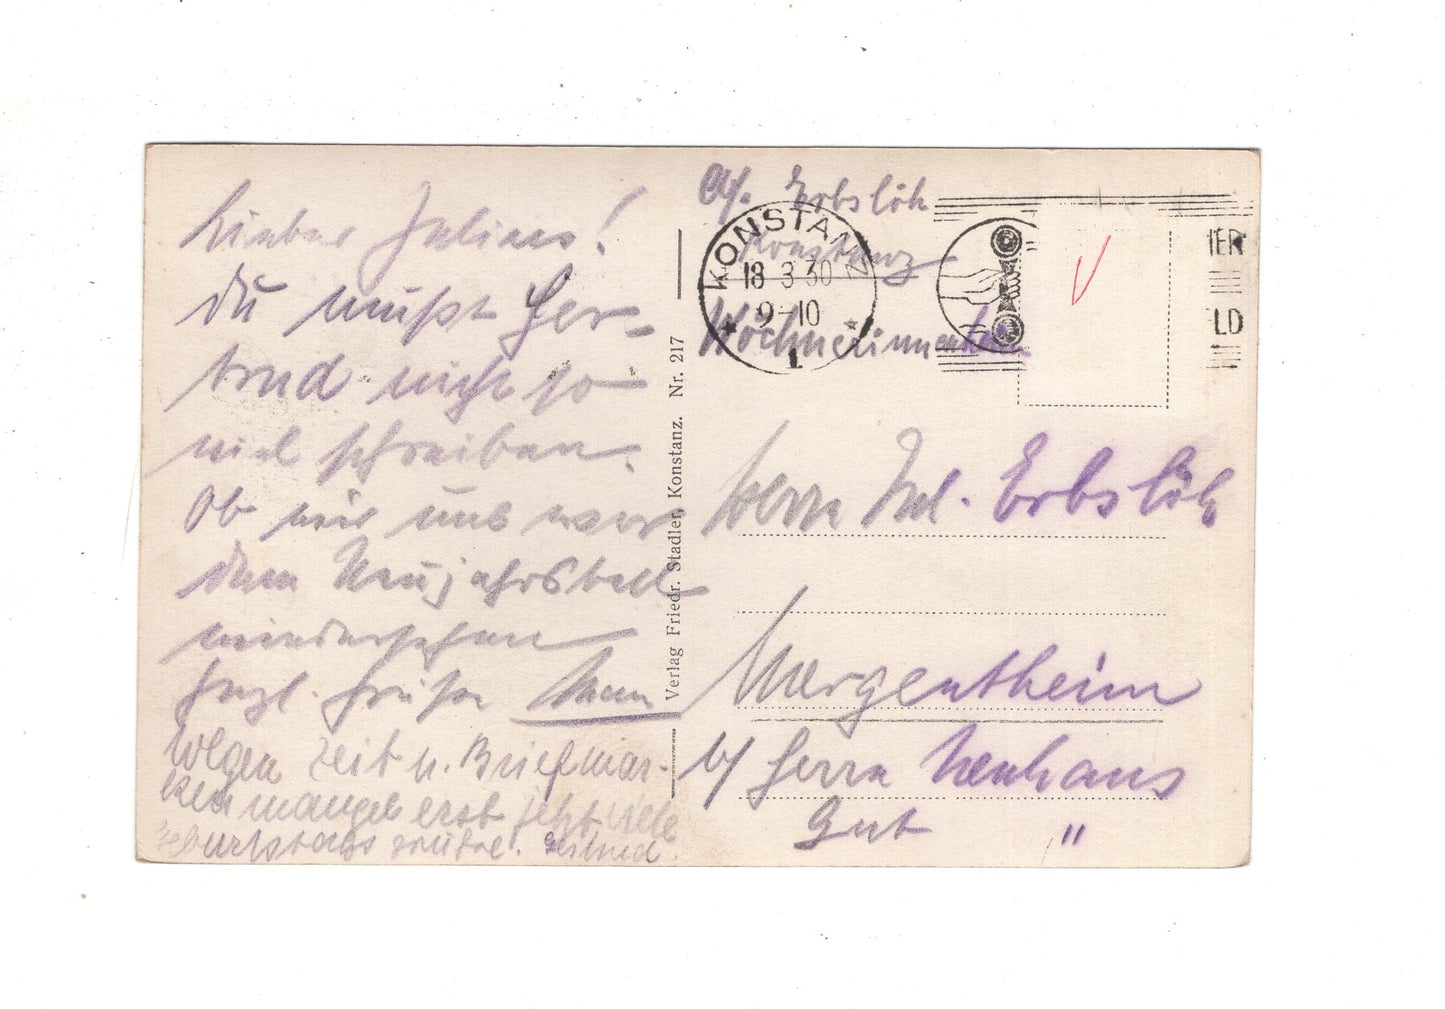 Lieber Julius!
Du mußt Ger-
trud nicht so
viel schreiben.
Ob wir uns
dem Neujahrsball
wiedersehen
Hrzl. Grüße
Wegen Zeit u. Briefmar-
kenmangel erst jetzt viele
Geburtstags
Verlag Friedr. Stadler, Konstanz. Nr. 217
Abs. Erbslöh
Konstanz
Wöchnerinnenheim
KONSTANZ
18 3 30
9-10
1
IER
LD
Herrn Jul. Erbslöh
Mergentheim
b/ Herrn Neuhaus
Gut "